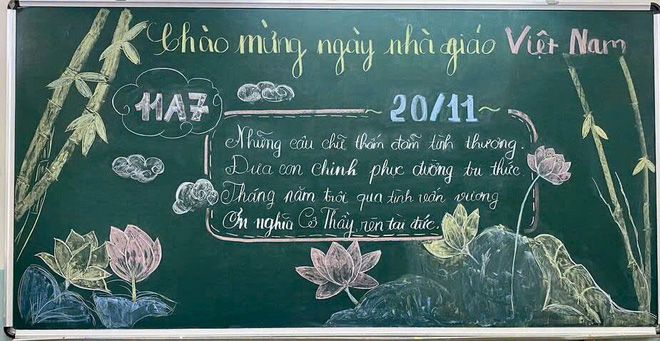 Chào mừng ngày nhà giáo Việt Nam
11A7
20/11~
Những câu chữ thấm đẫm tình thương.
Đưa con chinh phục đường tri thức
Tháng năm trôi qua tình vấn vương
Ơn nghĩa Cô Thầy rèn tài đức.